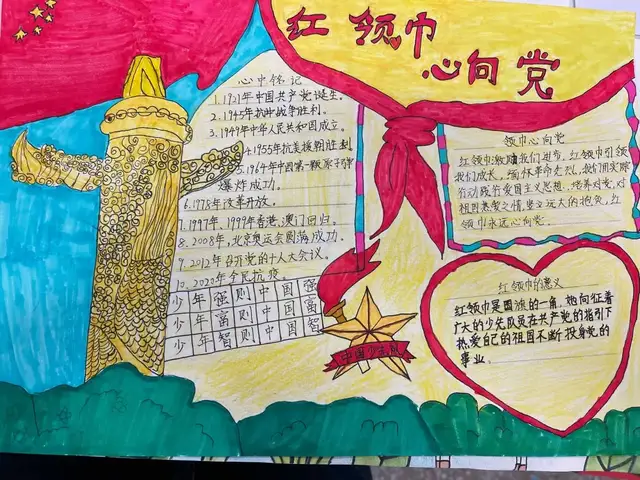 红领巾
心向党
心中铭记
1.1921年中国共产党诞生。
2.1945年抗日战争胜利。
3.1949年中华人民共和国成立。
4.1955年抗美援朝胜利
5.1964年中国第一颗原子弹
爆炸成功。
6.1978年改革开放。
7.1997年、1999年香港、澳门回归。
8.2008年,北京奥运会圆满成功。
9.2012年召开党的十八大会议。
10.2020年全民抗疫。
少年强则中国强
少年富则中国富
少年智则中国智
中国少先队
领巾心向党
红领巾激励我们进步,红领巾引领
我们成长。缅怀革命先烈,我们用实际
行动践行爱国主义思想,培养对党,对
祖国热爱之情,坚立远大的抱负,红
领巾永远心向党。
红领巾的意义
红领巾是国旗的一角,她向征着
广大的少先队员在共产党的指引下
热爱自己的祖国不断投身党的
事业。